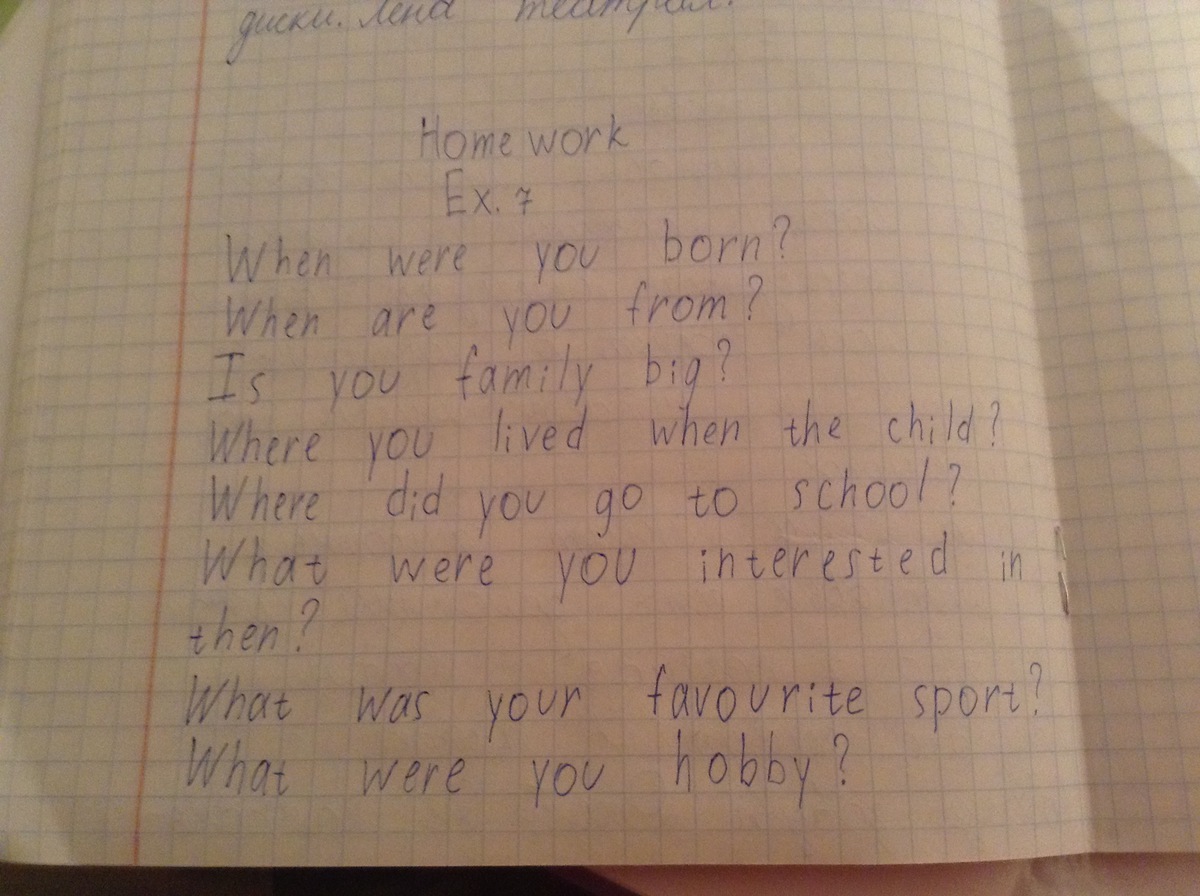 диски. Лена театрал.
Home work
Ex. 7
When were you born?
When are you from?
Is you family big?
Where you lived when the child?
Where did you go to school?
What were you interested in
then?
What was your favourite sport?
What were you hobby?